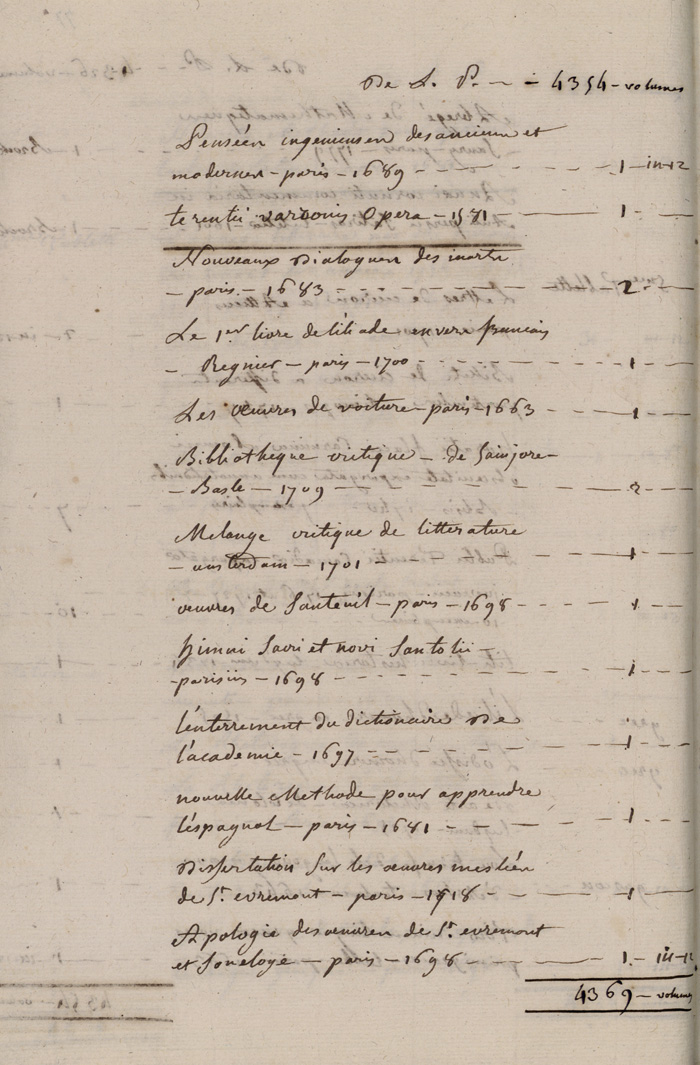 De L. P. — 4354 — volumes
Penseén ingenieusen desancien et
modernen — paris — 1689 - - - - 1 — in-12
terentii varronis Opera — 1581 — 1 -
Nouveaux Dialoguen des morts
— paris — 1683 - - - - 2 -
Le 1er livre de l'iliade en vers francais
— Regnier — paris — 1700 - - - - 1 -
Les œuvres de voiture — paris — 1663 - - - 1 -
Bibliotheque critique — de Sainjore —
— Basle — 1709 - - - - 2 -
Melange critique de litterature
— amsterdam — 1701 - - - - 1 -
œuvres de Santeuil — paris — 1698 - - - 1 -
himni Sacri et novi Santolii —
— parisiis — 1698 - - - - 1 -
l'enterrement du dictionaire De
l'academie — 1697 - - - - 1 -
nouvelle Methode pour apprendre
l'espagnol — paris — 1681 - - - 1 -
Dissertation Sur les œuvres meslén
de St. evremont — paris — 1718 - - - 1 -
Apologie desœuvren de St. evremont
et Soneloge — paris — 1698 - - - 1 — in-12
4369 — volumes